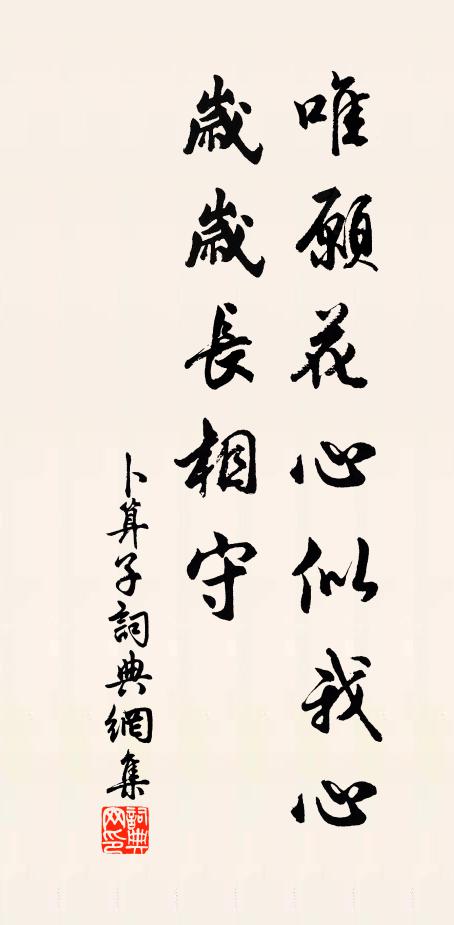 唯願花心似我心
歲歲長相守
卜算子詞典網集
詞典网印